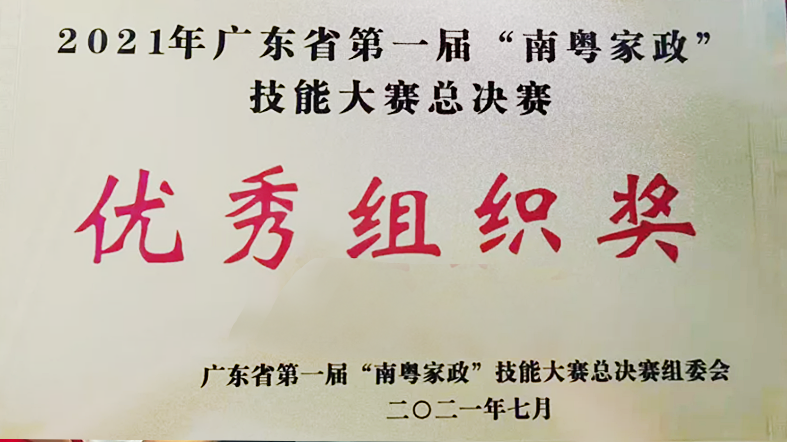 2021年广东省第一届“南粤家政”
技能大赛总决赛
优秀组织奖
广东省第一届“南粤家政”技能大赛总决赛组委会
二〇二一年七月